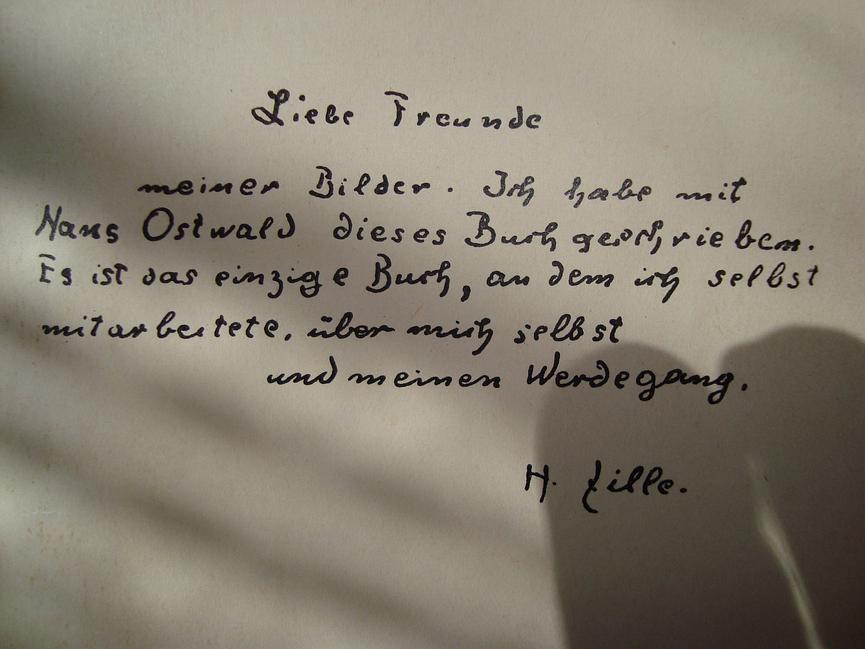 Liebe Freunde
meiner Bilder. Ich habe mit
Hans Ostwald dieses Buch geschrieben.
Es ist das einzige Buch, an dem ich selbst
mitarbeitete, über mich selbst
und meinen Werdegang.
H. Zille.